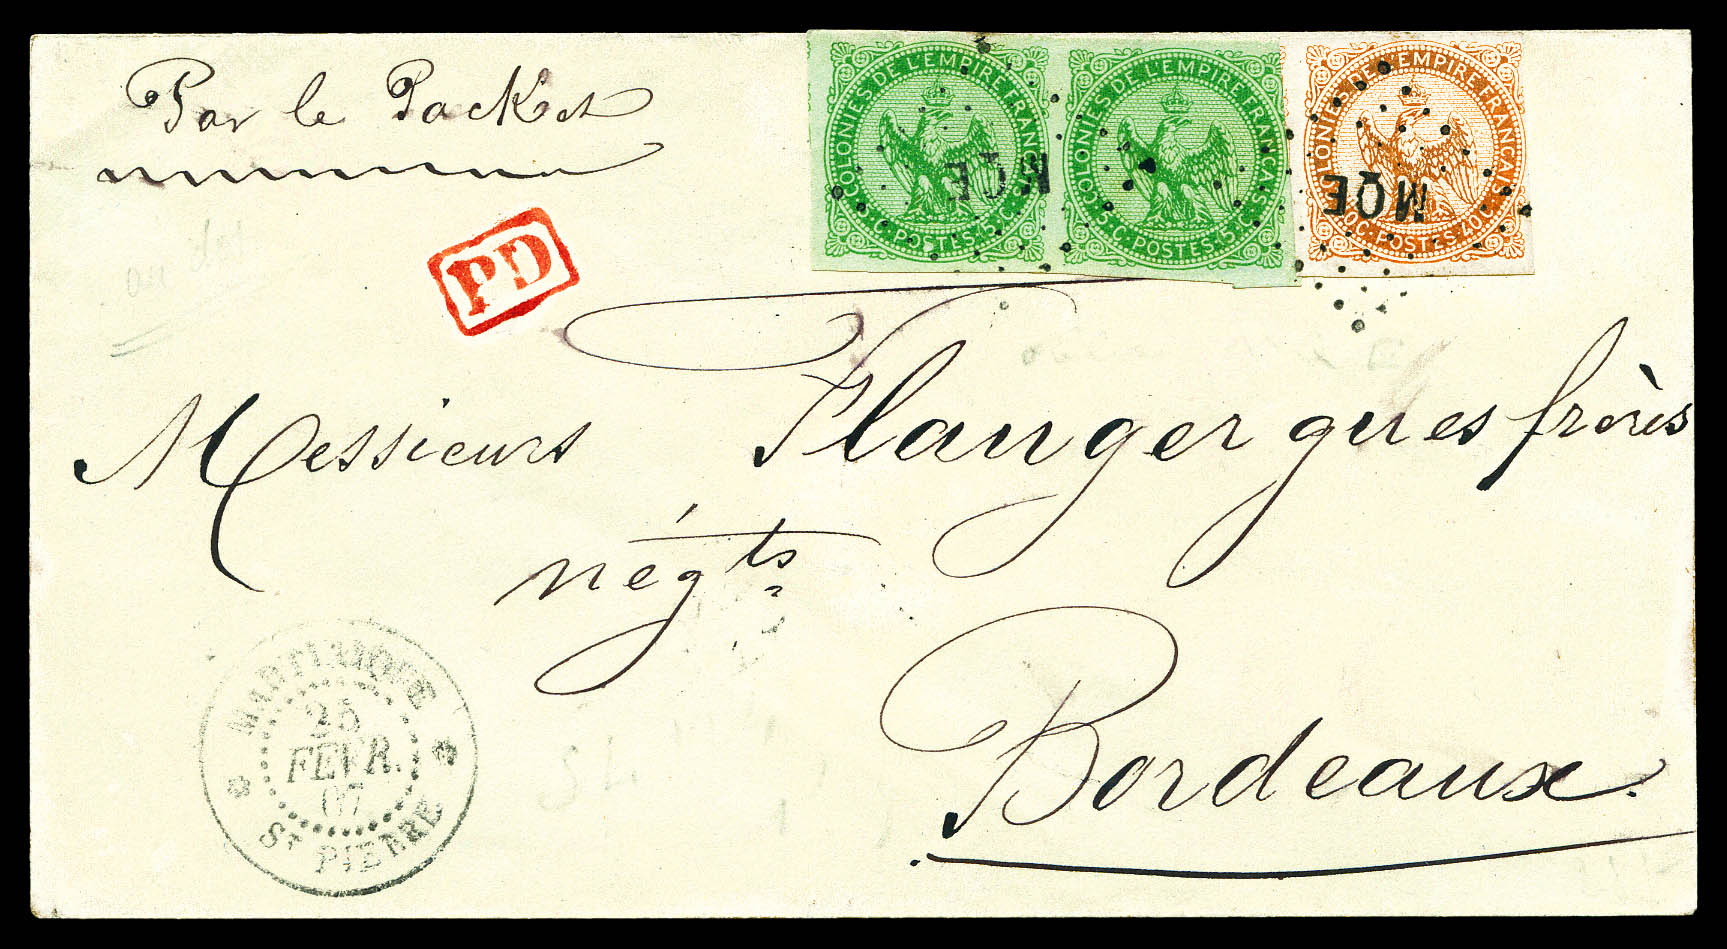 Par le Packet
COLONIES DE L'EMPIRE FRANÇAISE
5 C. POSTES 5 C.
COLONIES DE L'EMPIRE FRANÇAISE
5 C. POSTES 5 C.
COLONIES DE L'EMPIRE FRANÇAISE
40 C. POSTES 40 C.
MQE
MQE
PD
Messieurs Flangergues frères
négts
Bordeaux.
MARTINIQUE
25
FEVR.
67
ST PIERRE